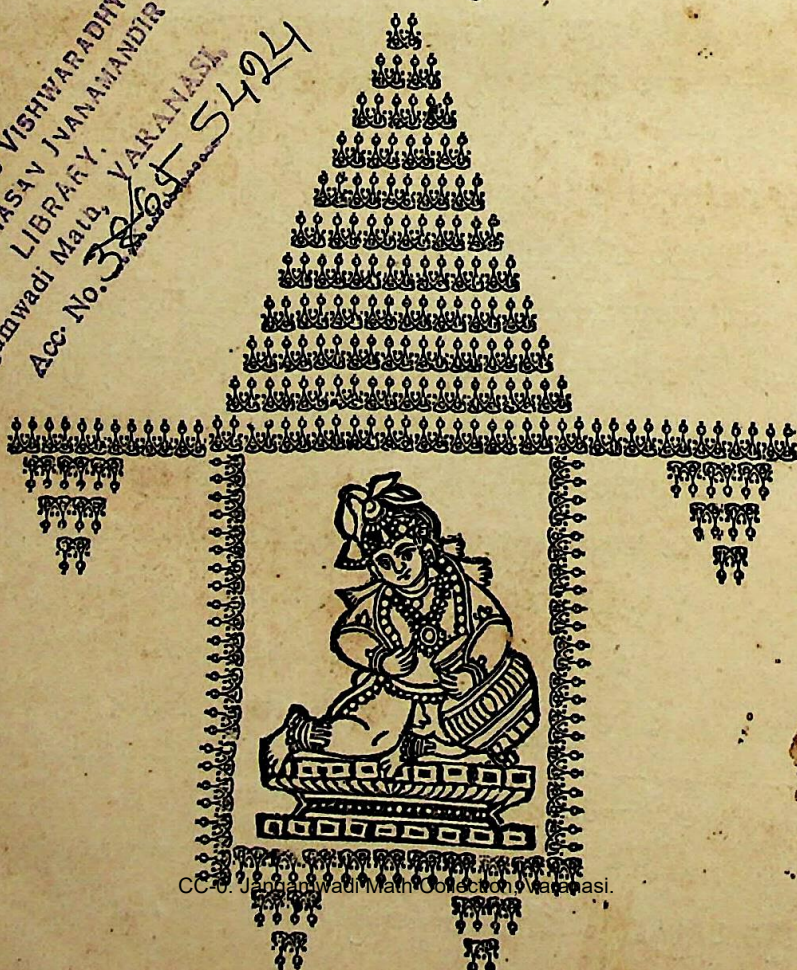 VISHWARADHY
HASAN JNANAMANDIR
LIBRARY.
amwadi Math, VARANASI,
Acc. No. 5424
CC-0. Jangamwadi Math Collection, Varanasi.